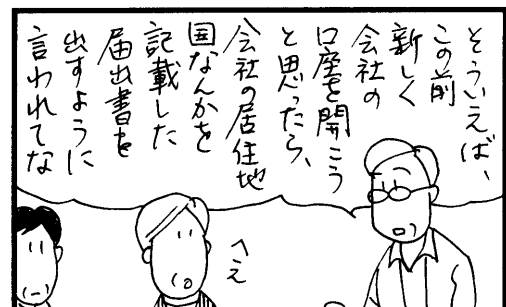 そういえば、
この前
新しく
会社の
口座を開こう
と思ったら、
会社の居住地
国なんかを
記載した
届出書を
出すように
言われてな
へえ